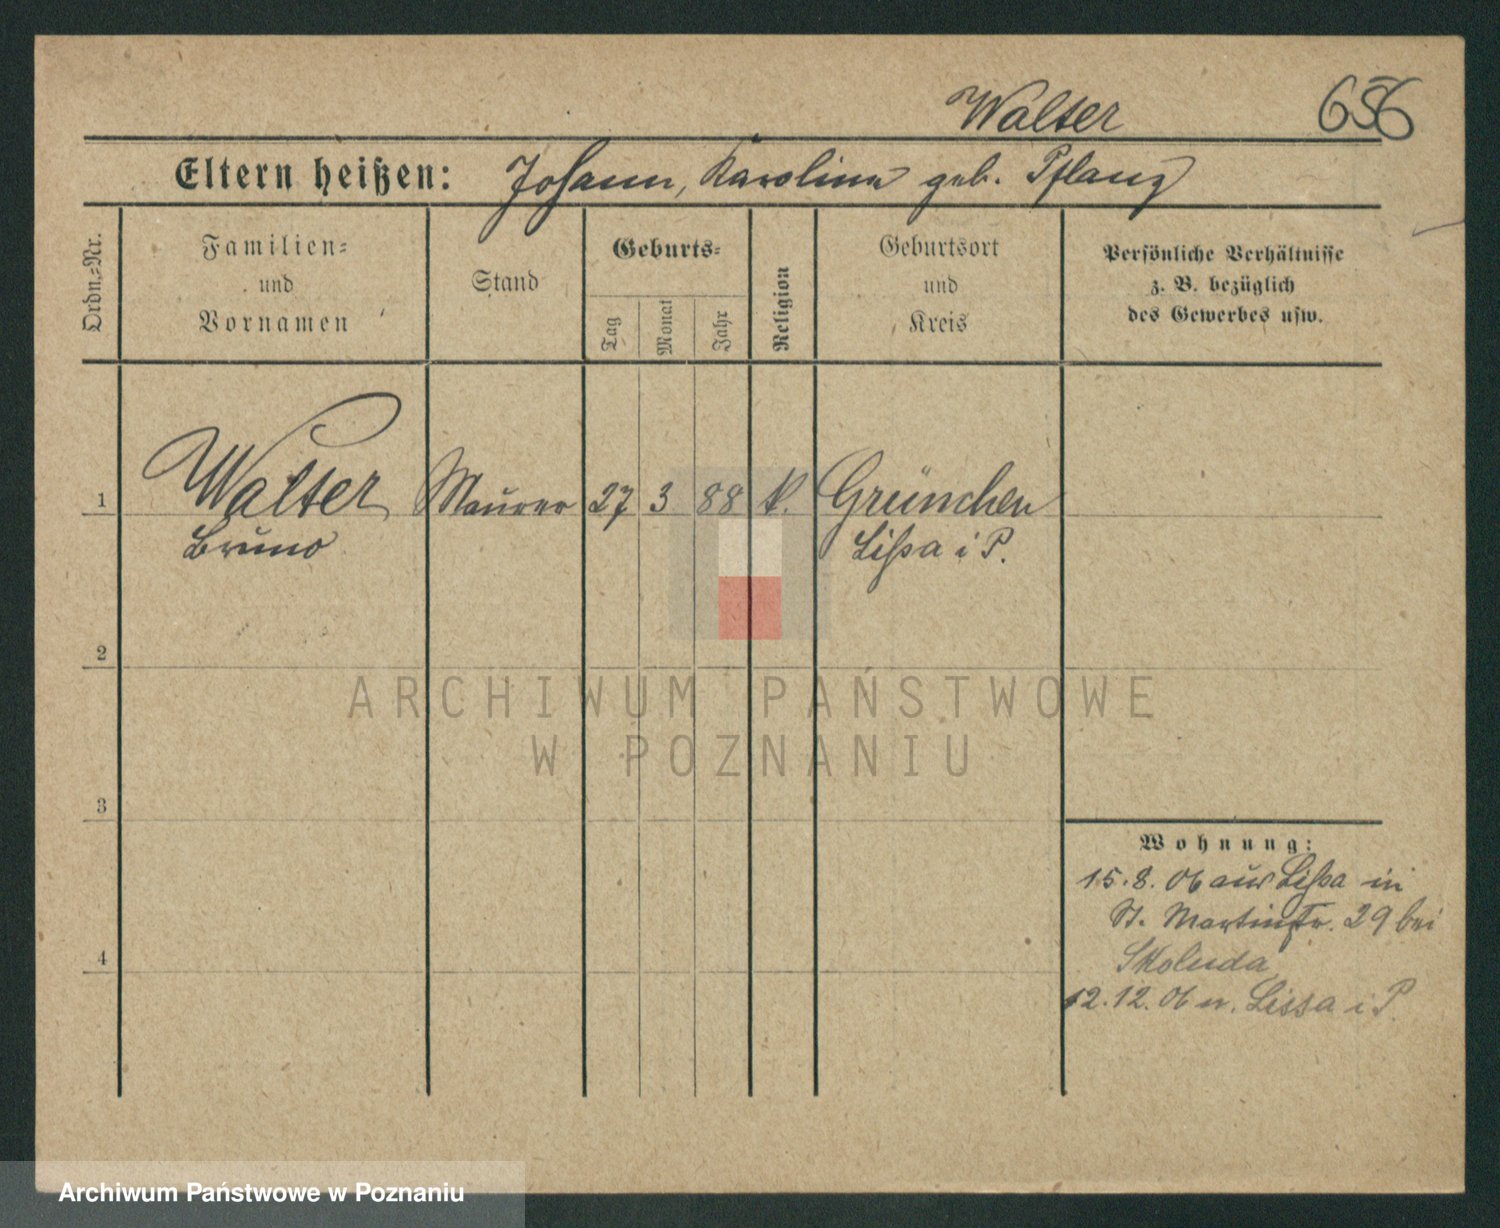 Walter 656
Eltern heißen: Johann, Karoline geb. Pflanz
Ordn.-Nr.
Familien-
und
Vornamen
Stand
Geburts-
Tag
Monat
Jahr
Religion
Geburtsort
und
Kreis
Persönliche Verhältnisse
z. B. bezüglich
des Gewerbes usw.
1 Walter Maurer 27 3 88 k. Grünchen
Bruno Lissa i P.
2
3
4
Wohnung:
15.8.06 aus Lissa in
St. Martinstr. 29 bei
Skoluda
12.12.06 n. Lissa i P.
ARCHIWUM PAŃSTWOWE
W POZNANIU
Archiwum Państwowe w Poznaniu